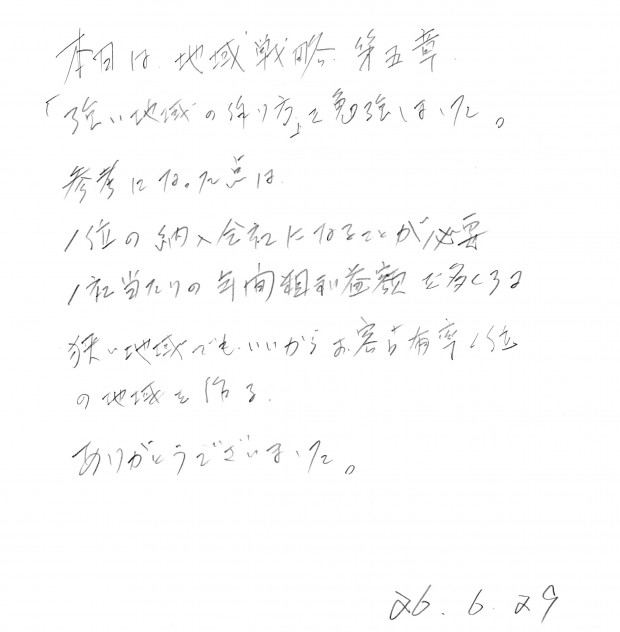 本日は、地域戦略 第五章
「強い地域の作り方」を勉強しました。
参考になった点は
1位の納入会社になることが必要
1社当たりの年間粗利益額を多くする
狭い地域でもいいからお客占有率1位
の地域を作る。
ありがとうございました。
26.6.29